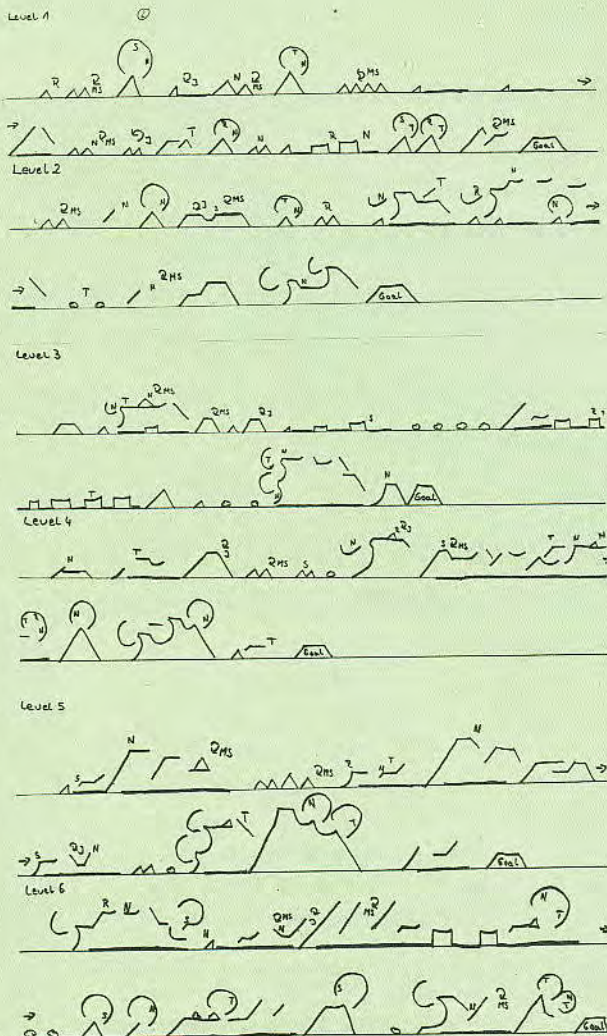 Level 1
S T
R R MS N R J N R MS N R MS
N R MS R J T R N N R N S T R T R MS
Goal
Level 2
R MS N N R J R MS T N R N T R N N
T N R MS N
Goal
Level 3
N T N R MS R MS R J S
T T N N N
Goal
Level 4
N T R J R MS S N R J S R MS N T N N
T N N N T
Goal
Level 5
S N R MS R MS T N
S R J N T N T
Goal
Level 6
R N S N R MS N R J MS R N T
S N T S N R MS T N T
Goal